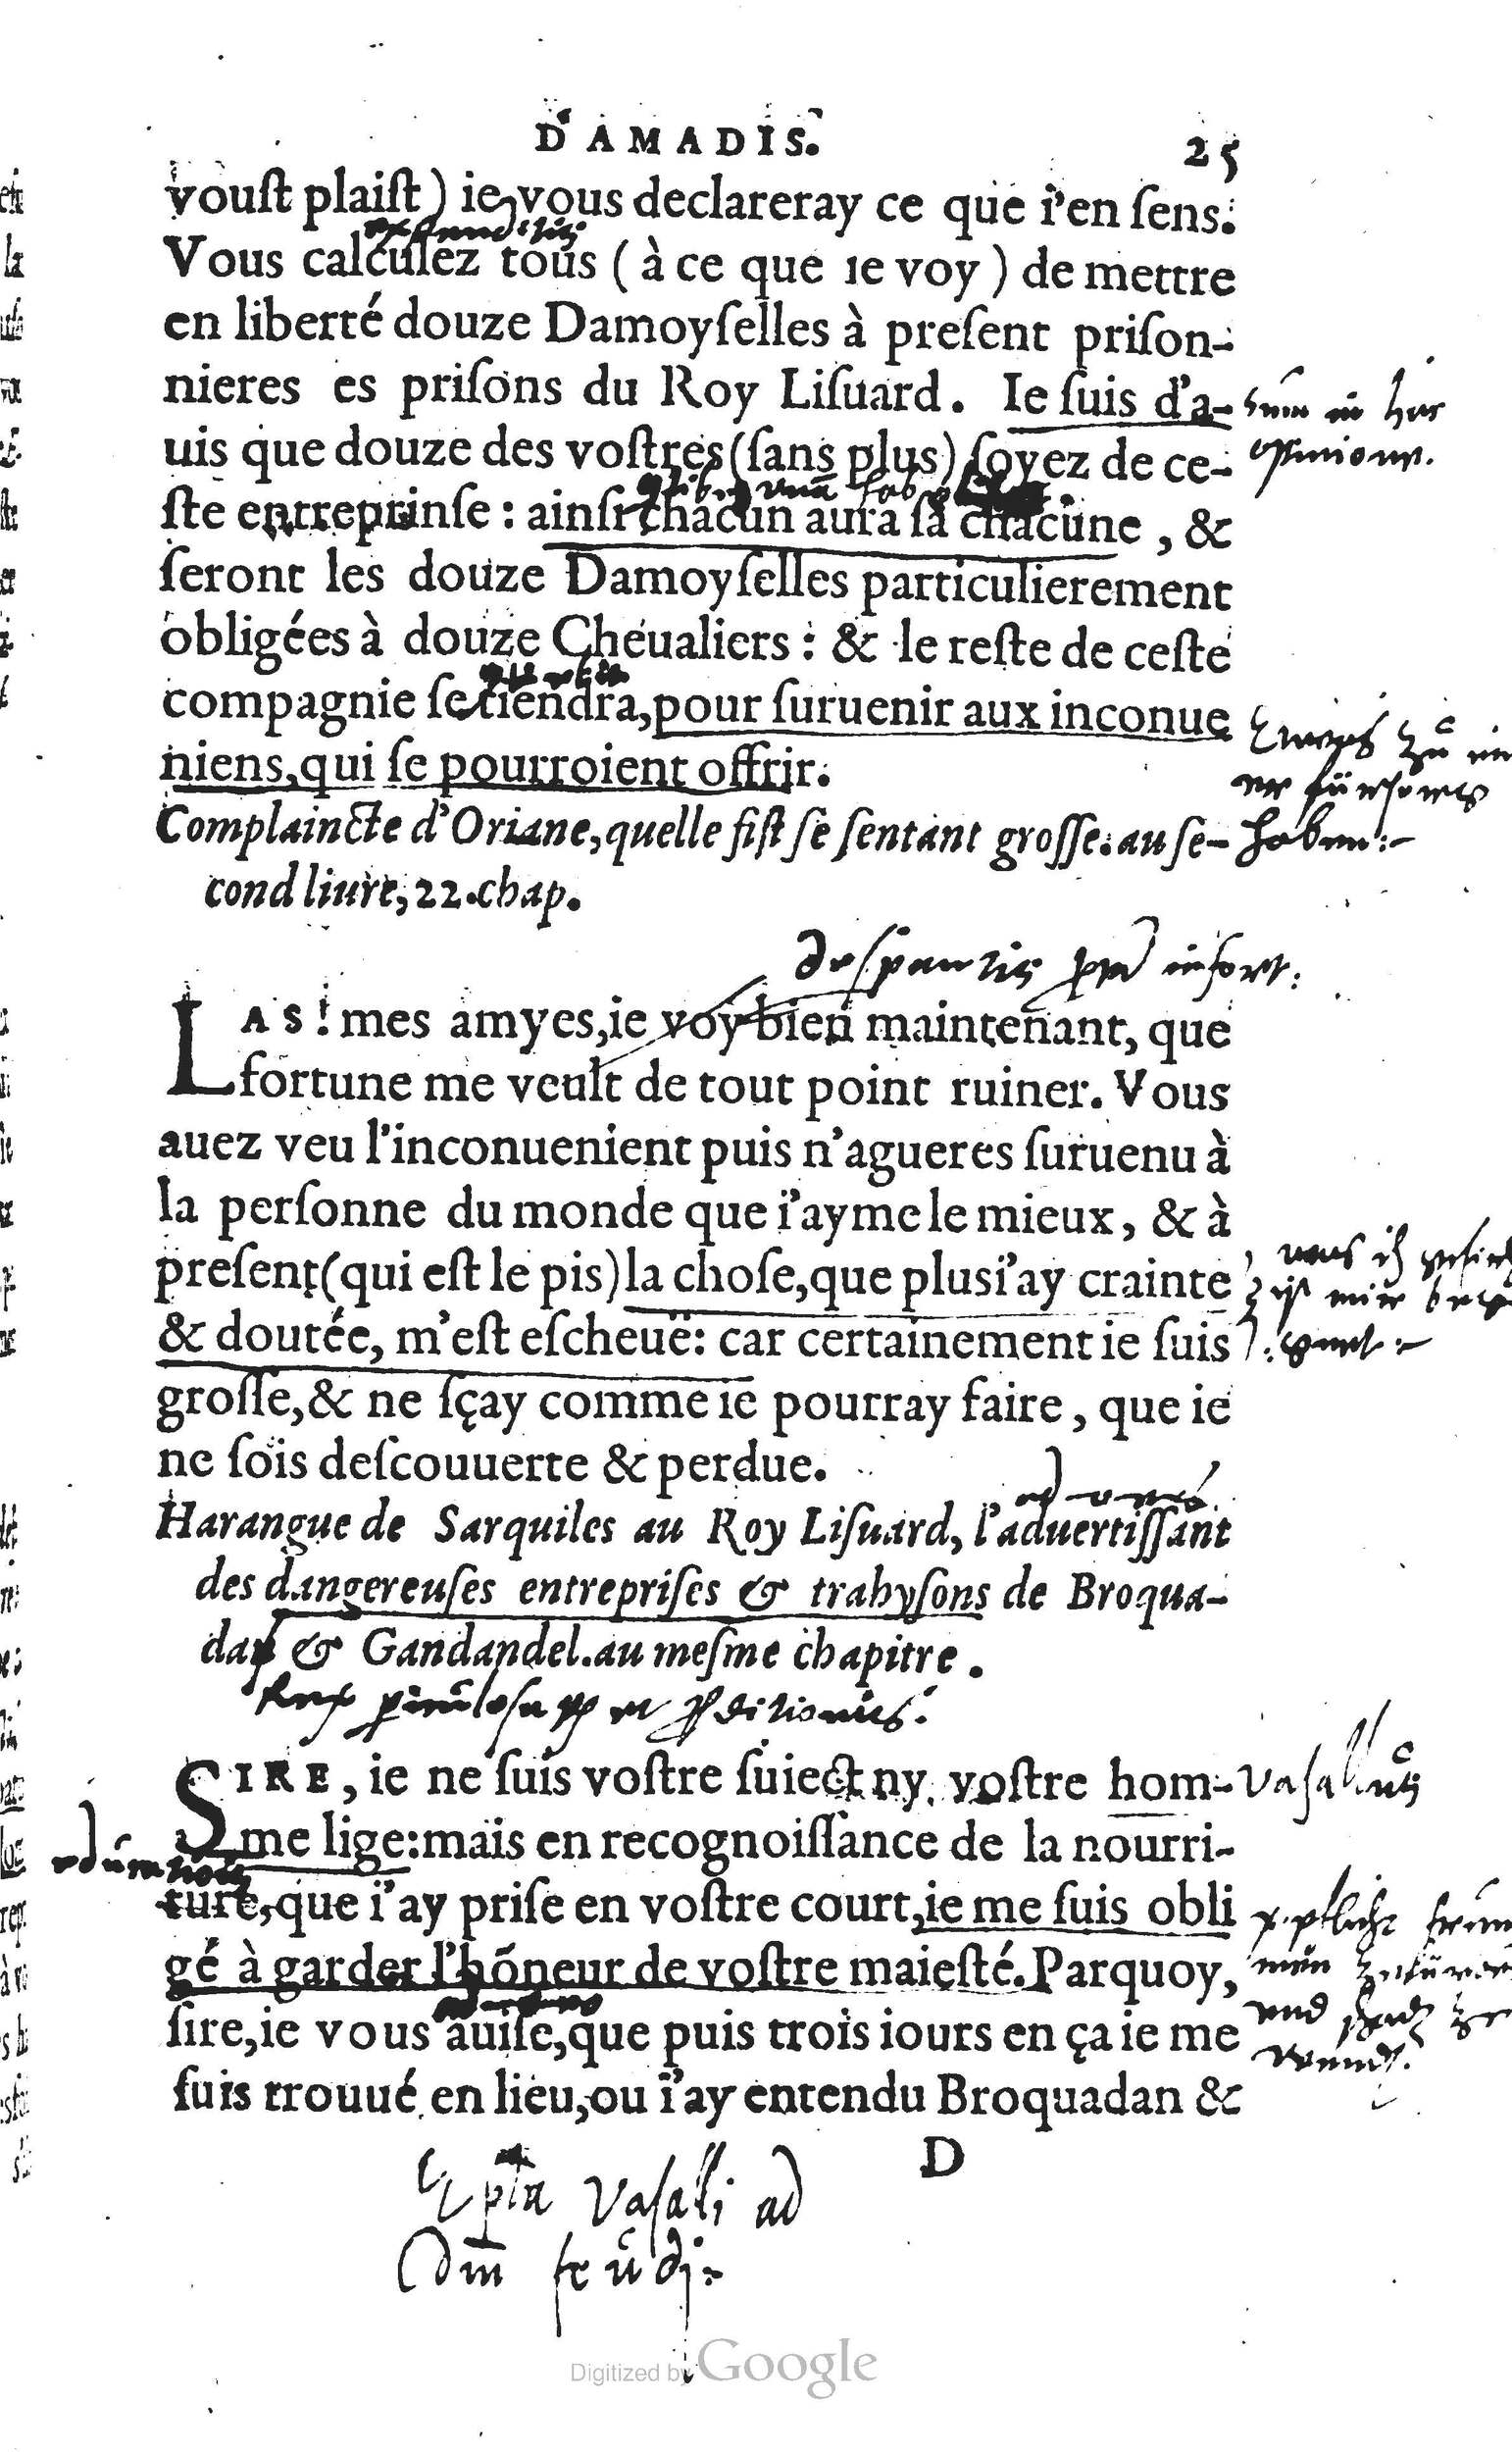 D'AMADIS.
25
voust plaist) ie vous declareray ce que i'en sens.
Vous calculez tous (à ce que ie voy) de mettre
en liberté douze Damoyselles à present prison-
nieres es prisons du Roy Lisuard. Ie suis d'a-
sum in hac
uis que douze des vostres (sans plus) soyez de ce-
opinione.
ste entreprinse: ainsi chacun aura sa chacune, &
seront les douze Damoyselles particulierement
obligées à douze Cheualiers: & le reste de ceste
compagnie se tiendra, pour suruenir aux inconue
niens, qui se pourroient offrir.
Complaincte d'Oriane, quelle fist se sentant grosse. au se-
haben:
cond liure, 22. chap.
LAS! mes amyes, ie voy bien maintenant, que
fortune me veult de tout point ruiner. Vous
auez veu l'inconuenient puis n'agueres suruenu à
la personne du monde que i'ayme le mieux, & à
present (qui est le pis) la chose, que plus i'ay crainte
ist mir
& doutée, m'est escheuë: car certainement ie suis
grosse, & ne sçay comme ie pourray faire, que ie
ne sois descouuerte & perdue.
Harangue de Sarquiles au Roy Lisuard, l'aduertissant
des dangereuses entreprises & trahysons de Broqua-
dan & Gandandel. au mesme chapitre.
SIRE, ie ne suis vostre suiect ny vostre hom-
Vasallus
me lige: mais en recognoissance de la nourri-
ture, que i'ay prise en vostre court, ie me suis obli
gé à garder l'hõneur de vostre maiesté. Parquoy,
und
sire, ie vous auise, que puis trois iours en ça ie me
suis trouué en lieu, ou i'ay entendu Broquadan &
D
Vasalli ad
Dm feudi
Digitized by Google